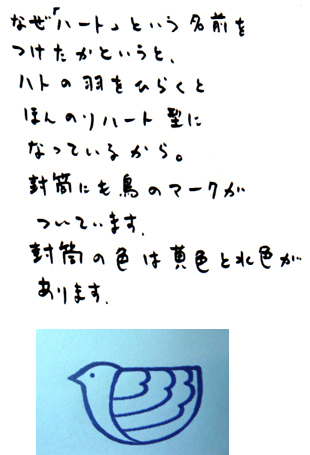 なぜ「ハート」という名前を
つけたかというと、
ハトの羽をひらくと
ほんのりハート型に
なっているから。
封筒にも鳥のマークが
ついています。
封筒の色は黄色と水色が
あります。